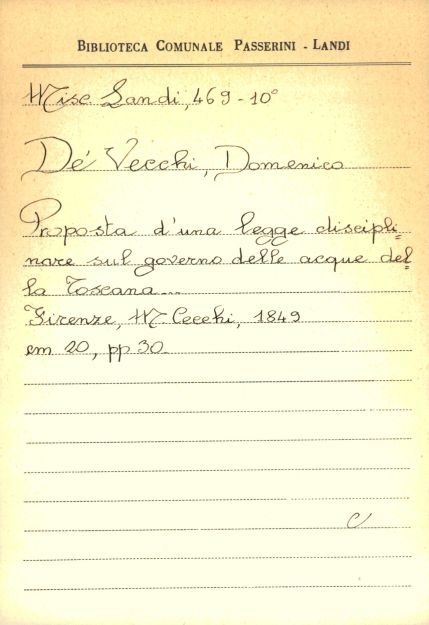 BIBLIOTECA COMUNALE PASSERINI - LANDI
Misc Landi, 469-10°
Dé Vecchi, Domenico
Proposta d'una legge discipli=
nare sul governo delle acque del=
la Toscana...
Firenze, M. Cecchi, 1849
cm 20, pp 30.
C